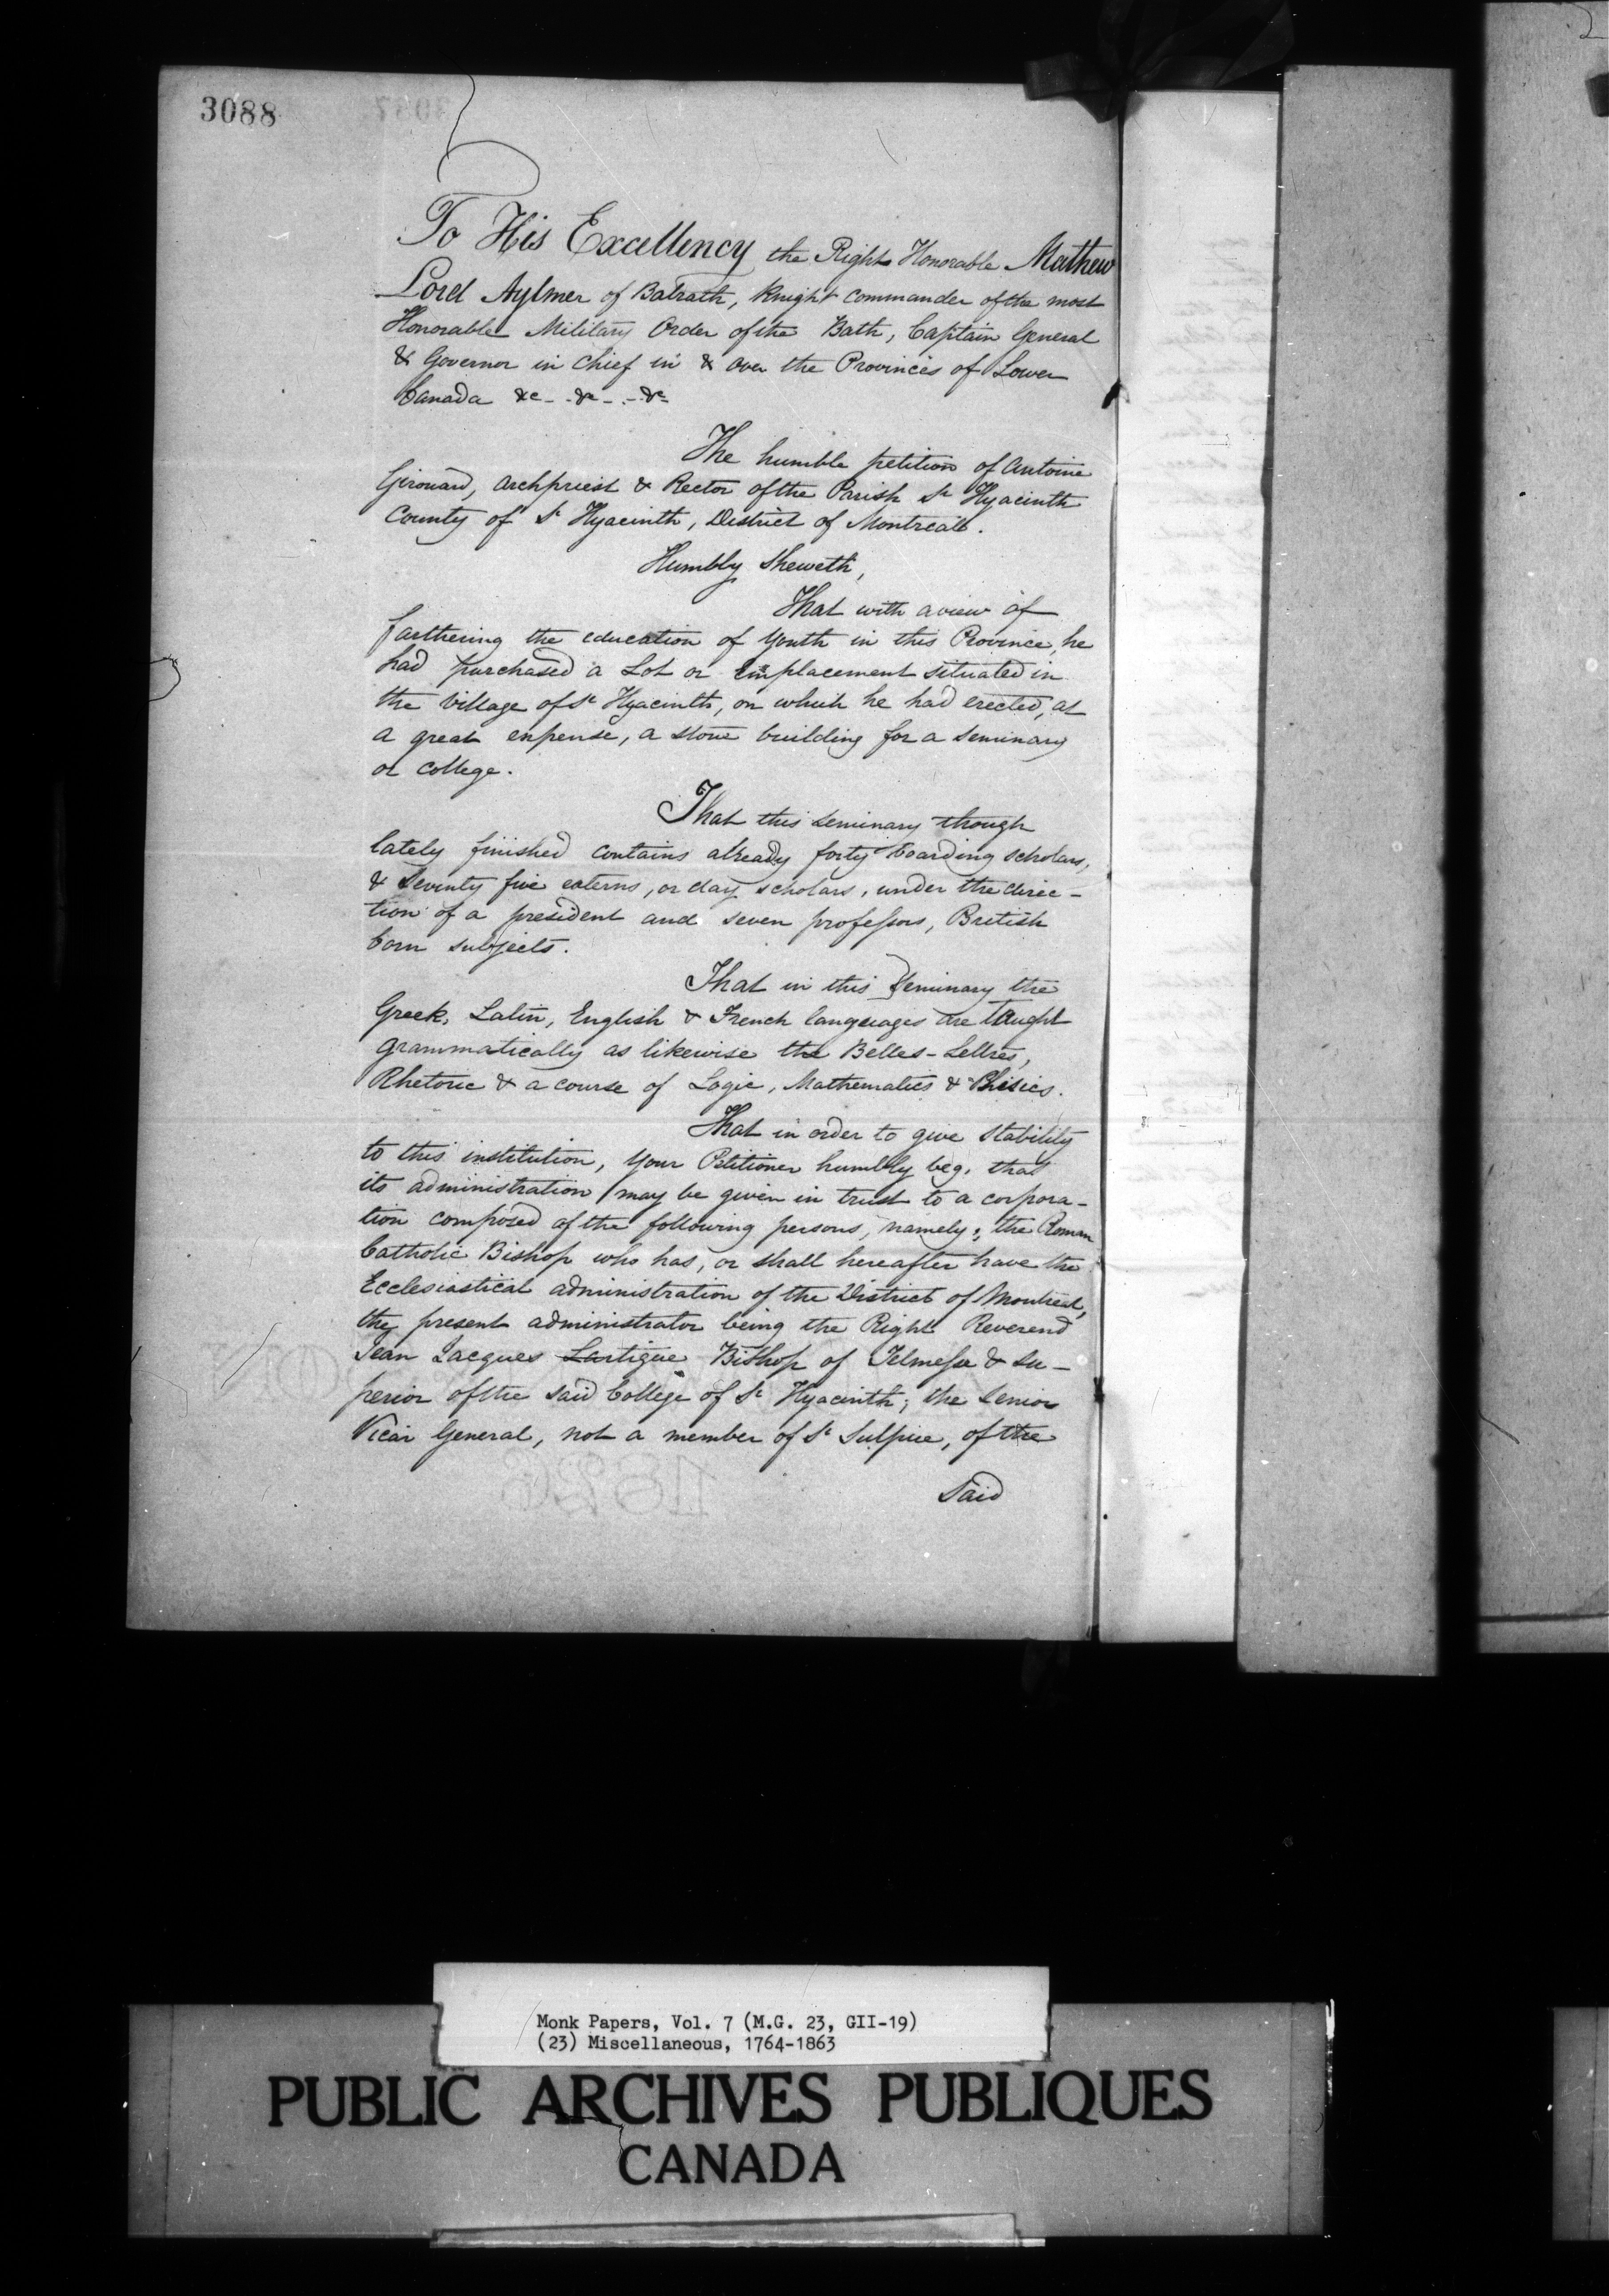 3088
To His Excellency the Right Honorable Mathew
Lord Aylmer of Balrath, Knight Commander of the most
Honorable Military Order of the Bath, Captain General
& Governor in Chief in & over the Provinces of Lower
Canada &c - &c - &c
The humble petition of Antoine
Girouard, Archpriest & Rector of the Parish St Hyacinth
County of St Hyacinth, District of Montreal.
Humbly Sheweth,
That with a view of
farthering the education of Youth in this Province, he
had purchased a Lot or Emplacement situated in
the Village of St Hyacinth, on which he had erected, at
a great expense, a stone building for a Seminary
or College.
That this Seminary though
lately finished contains already forty boarding scholars,
& Seventy five externs, or day scholars, under the direc-
tion of a president and seven professors, British
born subjects.
That in this Seminary the
Greek, Latin, English & French languages are taught
grammatically as likewise the Belles-Lettres,
Rhetoric & a course of Logic, Mathematics & Phisics.
That in order to give stability
to this institution, Your Petitioner humbly beg, that
its administration may be given in trust to a corpora-
tion composed of the following persons, namely; the Roman
Catholic Bishop who has, or shall hereafter have the
Ecclesiastical administration of the District of Montreal,
the present administrator being the Right Reverend
Jean Jacques Lartigue Bishop of Telmesse & Su-
perior of the said College of St Hyacinth; the Senior
Vicar General, not a member of St Sulpice, of the
Said
Monk Papers, Vol. 7 (M.G. 23, GII-19)
(23) Miscellaneous, 1764-1863
PUBLIC ARCHIVES PUBLIQUES
CANADA